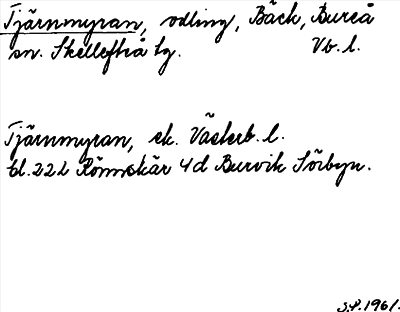 Tjärnmyran, odling, Bäck, Bureå
sn. Skellefteå tg. Vb. l.
Tjärnmyran, ek. Västerb. l.
bl. 22 L Rönnskär 4d Burvik Sörbyn.
S.P. 1961.